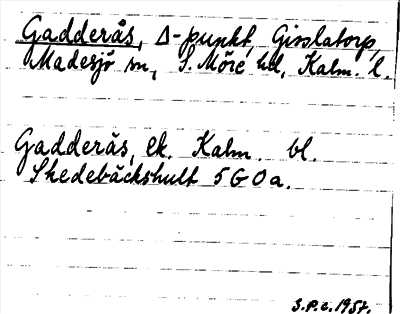 Gadderås, Δ-punkt, Gisslatorp,
Madesjö sn, S. Möre hd, Kalm. l.
Gadderås, ek. Kalm. bl.
Skedebäckshult 5G0a.
S.P.c. 1957.